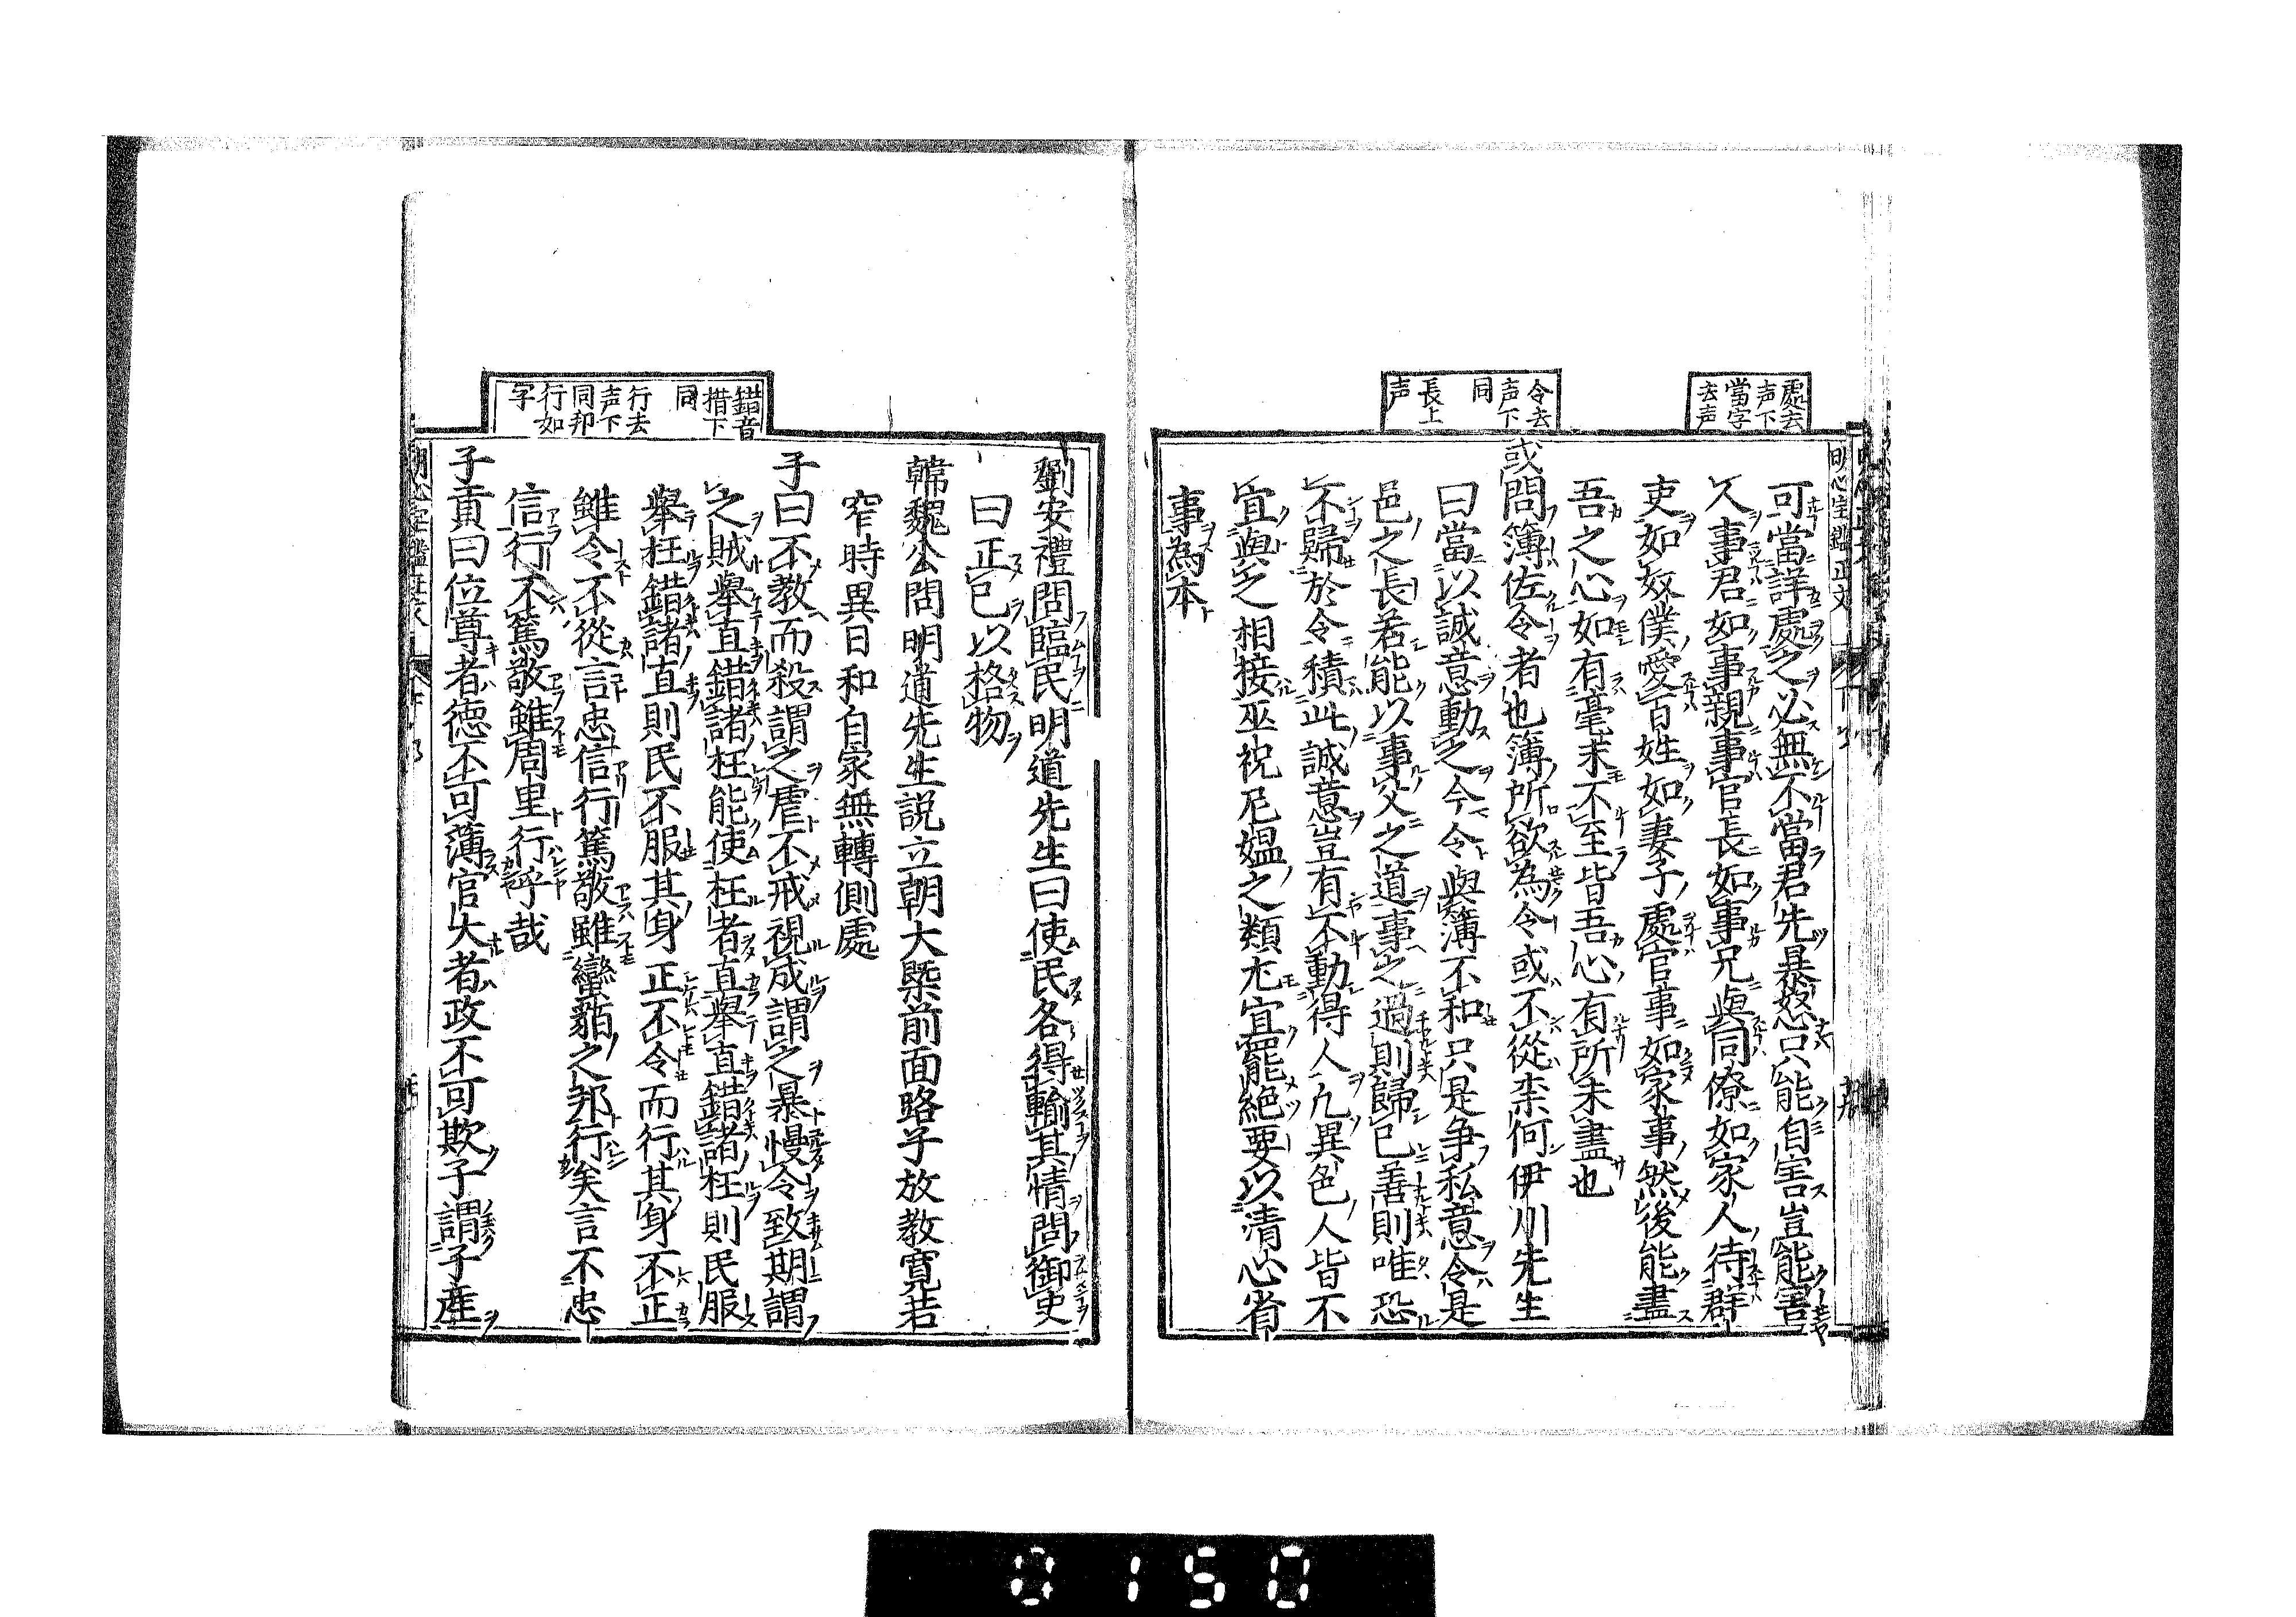 處去
声下
當字
去声
令去
声下
同
長上
声
可當詳處之必無不當君先暴怒只能自害豈能害
人事君如事親事官長如事兄與同僚如家人待群
吏如奴僕愛百姓如妻子處官事如家事然後能盡
吾之心如有毫芣不至皆吾心有所未盡也
或問簿佐令者也簿所欲為令或不從柰何伊川先生
曰當以誠意動之今令與簿不和只是争私意令是
邑之長若能以事父之道事之過則歸已善則唯恐
不歸於令積此誠意豈有不動得人凡異色人皆不
宜與之相接巫祝尼媼之類尤宜罷絕要以清心省
事為本
錯音
措下
同
行去
声下
同邦
行如
字
劉安禮問臨民明道先生曰使民各得輸其情問御史
曰正已以格物
韓魏公問明道先生説立朝大槩前面路子放教寛若
窄時異日和自家無轉側處
子曰不教而殺謂之虐不戒視成謂之暴慢令致期謂
之賊舉直錯諸枉能使枉者直舉直錯諸枉則民服
舉枉錯諸直則民不服其身正不令而行其身不正
雖令不從言忠信行篤敬雖蠻貊之邦行矣言不忠
信行不篤敬雖周里行乎哉
子貢曰位尊者德不可薄官大者政不可欺子謂子産
0150